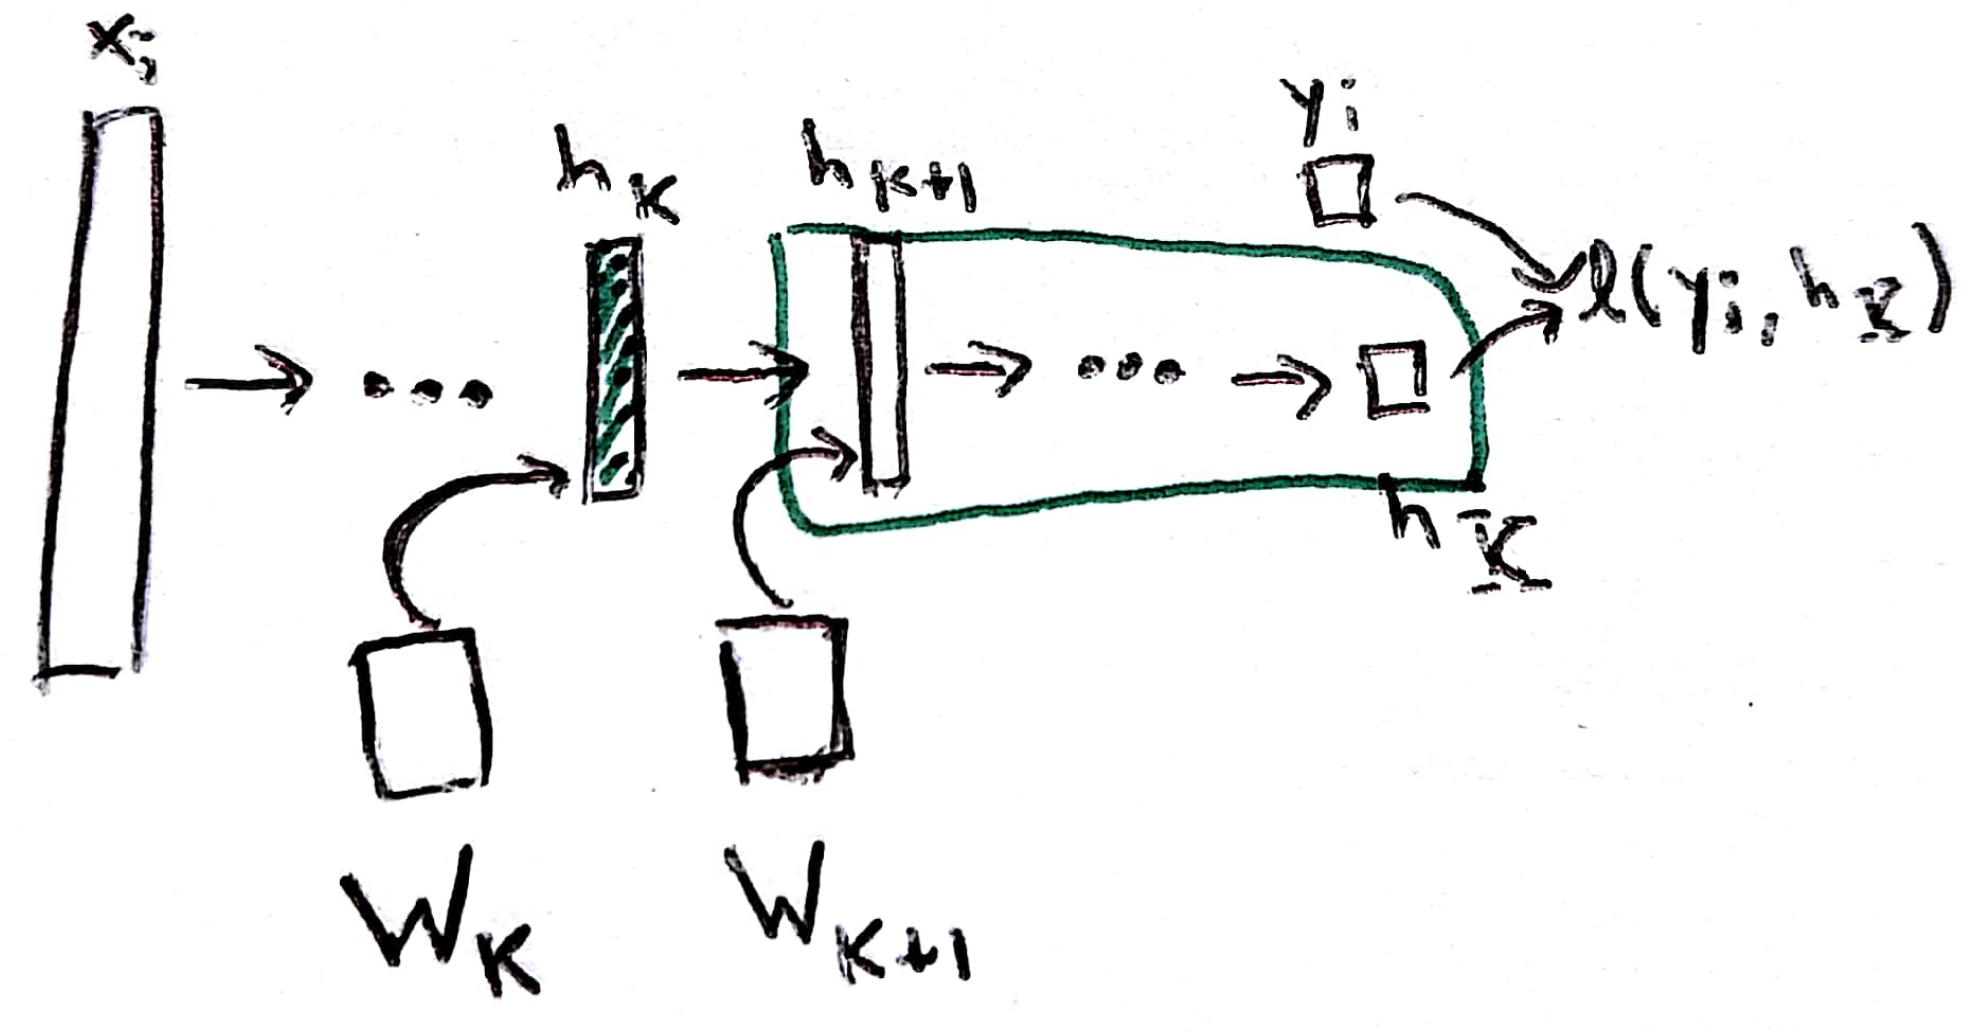 xi
hk
hk+1
yi
l(yi, hK)
hK
Wk
Wk+1